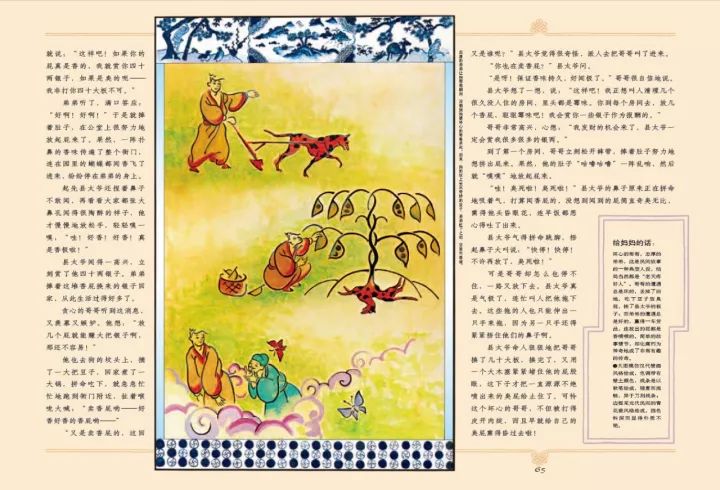 就说：“这样吧！如果你的
屁真是香的，我就赏你四十
两银子，如果是臭的呢——
我非打你四十大板不可。”
弟弟听了，满口答应：
“好啊！好啊！”于是就捧
着肚子，在公堂上很努力地
放起屁来了。果然，一阵扑
鼻的香味传遍了整个衙门，
连在园里的蝴蝶都闻香飞了
进来，纷纷停在弟弟的身上。
起先县太爷还捏着鼻子
不敢闻，再看看大家都张大
鼻孔闻得很陶醉的样子，他
才慢慢地放松手，轻轻嗅一
嗅，“哇！好香！好香！真
是香极啦！”
县太爷闻得一高兴，立
刻赏了他四十两银子。弟弟
捧着这堆香屁换来的银子回
家，从此生活过得好多了。
贪心的哥哥听到这消息，
又羡慕又嫉妒。他想：“放
几个屁就能赚大把银子啊，
那还不容易！”
他也去狗的坟头上，摘
了一大把豆子，回家煮了一
大锅，拼命吃下，就急急忙
忙地跑到衙门附近，扯着嗓
咙大喊：“卖香屁哟——好
香好香的香屁哟——”
“又是卖香屁的，这回
又是谁呢？”县太爷觉得很奇怪，派人去把哥哥叫了进来。
“你也在卖香屁？”县太爷问。
“是呀！保证香味持久，好闻极了。”哥哥很自信地说。
县太爷想了一想，说：“这样吧！我正想叫人清理几个
很久没人住的房间，里头都是霉味。你到每个房间去，放几
个香屁，驱驱霉味吧！我会赏你一些银子作为报酬的。”
哥哥非常高兴，心想：“我发财的机会来了，县太爷一
定会赏我很多很多的银两。”
到了第一个房间，哥哥立刻松开裤带，捧着肚子努力地
想挤出屁来。果然，他的肚子“咕噜咕噜”一阵乱响，然后
就“噗噗”地放起屁来。
“哇！臭死啦！臭死啦！”县太爷的鼻子原来正在拼命
地吸着气，打算闻香屁的，没想到闻到的屁简直奇臭无比，
熏得他头昏眼花，连早饭都恶
心得吐了出来。
县太爷气得拼命跳脚，捂
起鼻子大叫说：“快停！快停！
不许再放了，臭死啦！”
可是哥哥却怎么也停不
住，一路又放下去。县太爷真
是气极了，连忙叫人把他拖下
去。这些拖的人也只能伸出一
只手来拖，因为另一只手还得
紧紧捂住他们的鼻子啊。
县太爷命人狠狠地把哥哥
揍了几十大板，揍完了，又用
一个大木塞紧紧堵住他的屁股
眼，这下子才把一直源源不绝
喷出来的臭屁给止住了。可怜
这个坏心的哥哥，不但被打得
皮开肉绽，而且早就给自己的
臭屁熏得昏过去啦！
给妈妈的话：
65